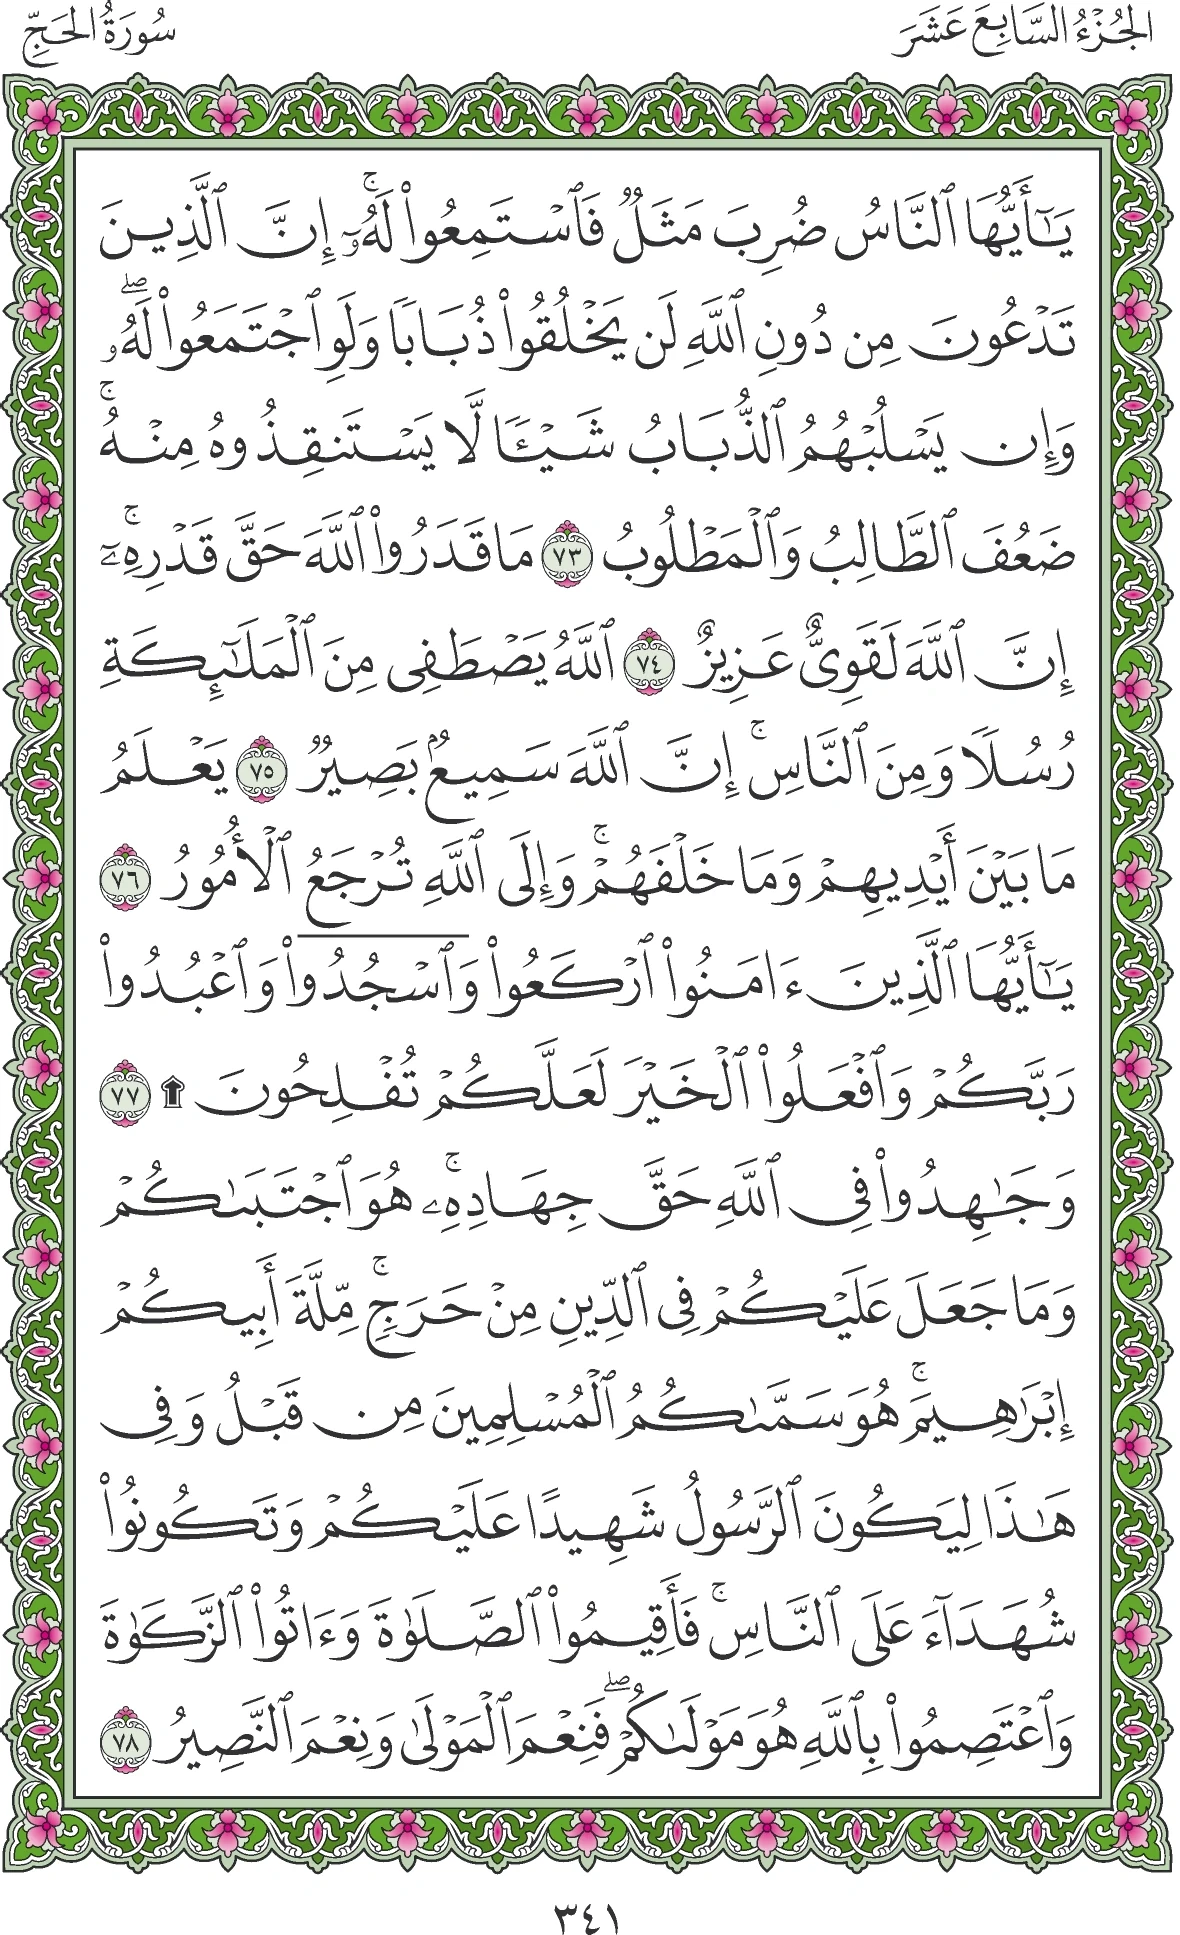 الجُزْءُ السَّابِعَ عَشَرَ
سُورَةُ الحَجِّ
يَـٰٓأَيُّهَا ٱلنَّاسُ ضُرِبَ مَثَلٌ فَٱسْتَمِعُوا۟ لَهُۥٓ ۚ إِنَّ ٱلَّذِينَ
تَدْعُونَ مِن دُونِ ٱللَّهِ لَن يَخْلُقُوا۟ ذُبَابًا وَلَوِ ٱجْتَمَعُوا۟ لَهُۥ ۖ
وَإِن يَسْلُبْهُمُ ٱلذُّبَابُ شَيْـًٔا لَّا يَسْتَنقِذُوهُ مِنْهُ ۚ
ضَعُفَ ٱلطَّالِبُ وَٱلْمَطْلُوبُ ٧٣ مَا قَدَرُوا۟ ٱللَّهَ حَقَّ قَدْرِهِۦٓ ۚ
إِنَّ ٱللَّهَ لَقَوِىٌّ عَزِيزٌ ٧٤ ٱللَّهُ يَصْطَفِى مِنَ ٱلْمَلَـٰٓئِكَةِ
رُسُلًا وَمِنَ ٱلنَّاسِ ۚ إِنَّ ٱللَّهَ سَمِيعٌۢ بَصِيرٌ ٧٥ يَعْلَمُ
مَا بَيْنَ أَيْدِيهِمْ وَمَا خَلْفَهُمْ ۗ وَإِلَى ٱللَّهِ تُرْجَعُ ٱلْأُمُورُ ٧٦
يَـٰٓأَيُّهَا ٱلَّذِينَ ءَامَنُوا۟ ٱرْكَعُوا۟ وَٱسْجُدُوا۟ وَٱعْبُدُوا۟
رَبَّكُمْ وَٱفْعَلُوا۟ ٱلْخَيْرَ لَعَلَّكُمْ تُفْلِحُونَ ۩ ٧٧
وَجَـٰهِدُوا۟ فِى ٱللَّهِ حَقَّ جِهَادِهِۦ ۚ هُوَ ٱجْتَبَىٰكُمْ
وَمَا جَعَلَ عَلَيْكُمْ فِى ٱلدِّينِ مِنْ حَرَجٍ ۚ مِّلَّةَ أَبِيكُمْ
إِبْرَٰهِيمَ ۚ هُوَ سَمَّىٰكُمُ ٱلْمُسْلِمِينَ مِن قَبْلُ وَفِى
هَـٰذَا لِيَكُونَ ٱلرَّسُولُ شَهِيدًا عَلَيْكُمْ وَتَكُونُوا۟
شُهَدَآءَ عَلَى ٱلنَّاسِ ۚ فَأَقِيمُوا۟ ٱلصَّلَوٰةَ وَءَاتُوا۟ ٱلزَّكَوٰةَ
وَٱعْتَصِمُوا۟ بِٱللَّهِ هُوَ مَوْلَىٰكُمْ ۖ فَنِعْمَ ٱلْمَوْلَىٰ وَنِعْمَ ٱلنَّصِيرُ ٧٨
٣٤١